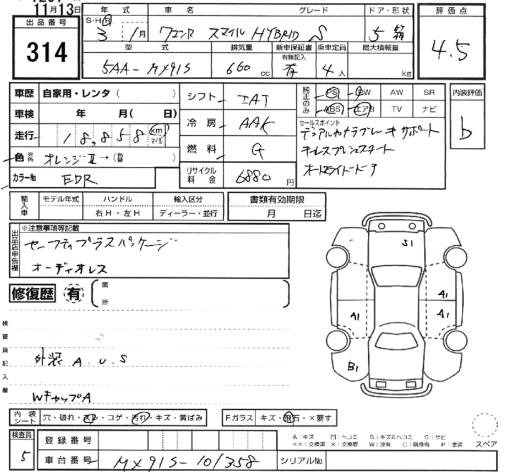 11月13日
出品番号
314
年式 車名 グレード ドア・形状
S・H・R 3年 1月 ワゴンR スマイル HYBRID S 5 箱
型式 排気量 新車保証書 乗車定員 最大積載量
有無記入
5AA-MX91S 660cc 有 4人 kg
評価点
4.5
車歴 自家用・レンタ( )
車検 年 月( 日)
走行 18,858 km
色 オレンジⅡ→( )
カラーNo EDR
シフト IAT
冷房 AAC
燃料 G
リサイクル料金 6880円
純正のみ PS PW AW SR
ABS エアB TV ナビ
セールスポイント
デュアルカメラブレーキサポート
キーレスプッシュスタート
オートスライドドア
内装評価
b
輸入車 モデル年式 ハンドル 輸入区分 書類有効期限
右H・左H ディーラー・並行 月 日迄
出品店申告欄
※注意事項等記載
セーフティプラスパッケージ
オーディオレス
修復歴 有 箇所
検査員記入欄
外装 A.U.S
WキャップA
S1
A1
A1
A1
A1
B1
内装シート 穴・破れ・コゲ・汚れ・キズ・黄ばみ
Fガラス キズ・石・×要す
A:キズ M:ヘコミ B:キズ&ヘコミ S:サビ
スペア
検査員 5
登録番号
車台番号 MX91S-101358 シリアルNo.